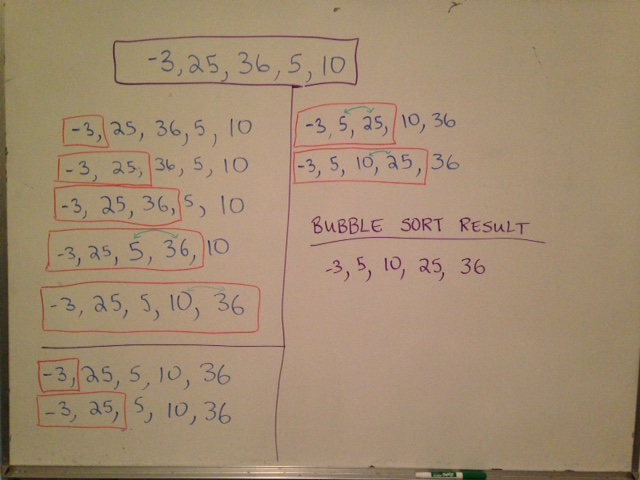 -3, 25, 36, 5, 10
-3, 25, 36, 5, 10
-3, 25, 36, 5, 10
-3, 25, 36, 5, 10
-3, 25, 5, 36, 10
-3, 25, 5, 10, 36
-3, 25, 5, 10, 36
-3, 25, 5, 10, 36
-3, 5, 25, 10, 36
-3, 5, 10, 25, 36
BUBBLE SORT RESULT
-3, 5, 10, 25, 36